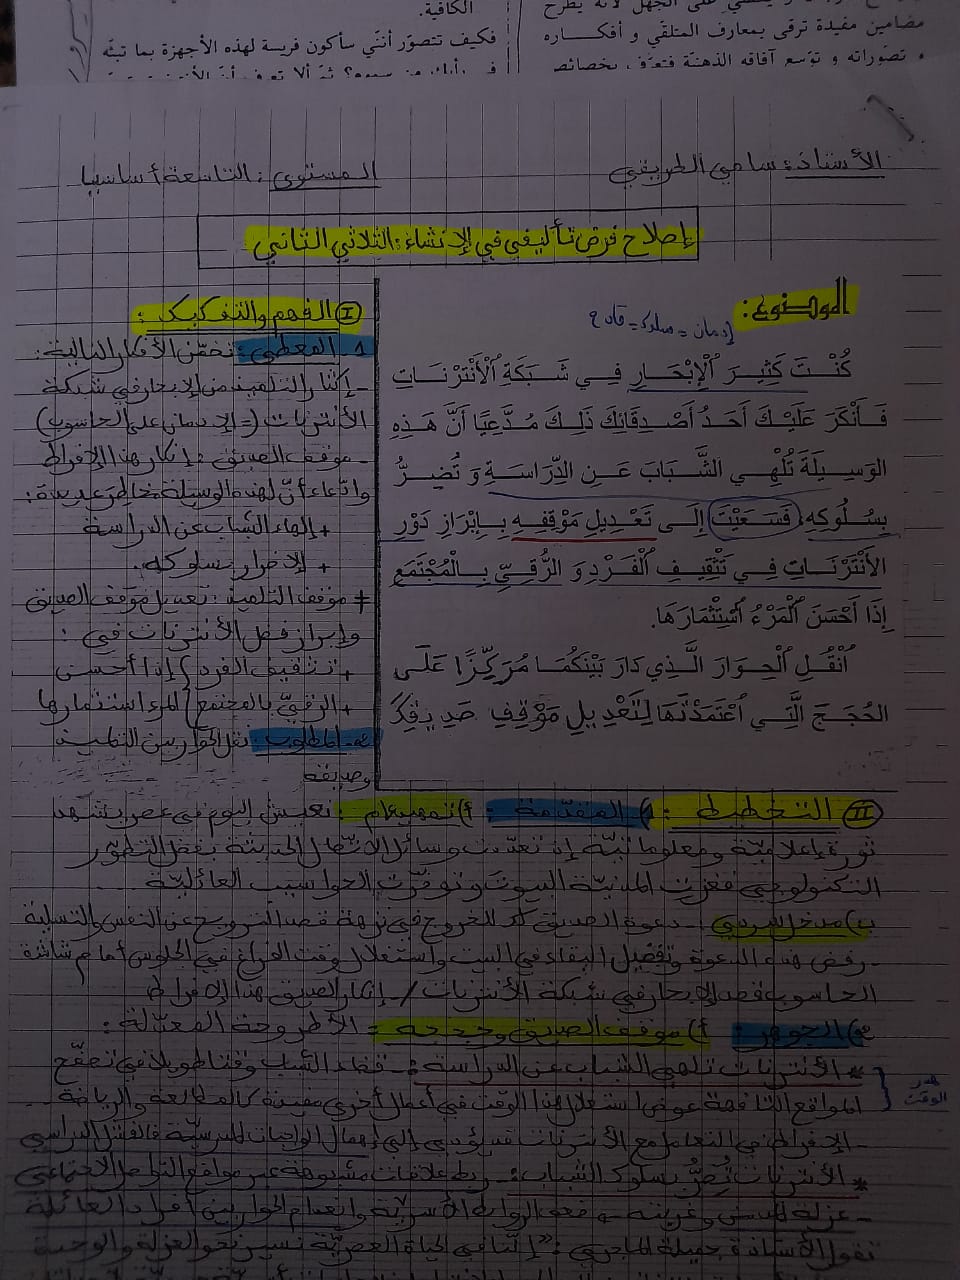 الكافية.
فكيف تتصوّر أنّني سأكون فريسة لهذه الأجهزة بما تبثّه
على الجهل لأنه يطرح
مضامين مفيدة ترقى بمعارف المتلقّي و أفكاره
و تصوّراته و توّسع آفاقه الذهنيّة فتعرّف بخصائص
الأستاذ: سامي الطريقي
المستوى: التاسعة أساسيا
إصلاح فرض تأليفي في الإنشاء: الثلاثي الثاني
الموضوع:
إدمان = سلوك = قادح
كُنْتَ كَثِيرَ ٱلْإِبْحَارِ فِي شَبَكَةِ ٱلْأَنْتَرْنَاتِ
فَأَنْكَرَ عَلَيْكَ أَحَدُ أَصْدِقَائِكَ ذَلِكَ مُدَّعِيًا أَنَّ هَذِهِ
الوَسِيلَةَ تُلْهِي الشَّبَابَ عَنِ الدِّرَاسَةِ وَ تُضِرُّ
بِسُلُوكِهِ، فَسَعَيْتَ إِلَى تَعْدِيلِ مَوْقِفِهِ بِإِبْرَازِ دَوْرِ
الأَنْتَرْنَاتِ فِي تَثْقِيفِ ٱلْفَرْدِ وَ الرُّقِيِّ بِالْمُجْتَمَعِ
إِذَا أَحْسَنَ ٱلْمَرْءُ ٱسْتِثْمَارَهَا.
اُنْقُلِ ٱلْحِوَارَ الَّذِي دَارَ بَيْنَكُمَا مُرَكِّزًا عَلَى
الحُجَجِ الَّتِي اعْتَمَدْتَهَا لِتَعْدِيلِ مَوْقِفِ صَدِيقِكَ
I الفهم والتفكيك:
1- المعطى: تضمّن الأفكار التالية:
- إكثار التلميذ من الإبحار في شبكة
الأنترنات (= الإدمان على الحاسوب)
- موقف الصديق: إنكار هذا الإفراط
وادّعاء أنّ لهذه الوسيلة مخاطر عديدة:
+ إلهاء الشباب عن الدراسة
+ الإضرار بسلوكه.
≠ موقف التلميذ: تعديل موقف الصديق
وإبراز فضل الأنترنات في:
+ تثقيف الفرد } إذا أحسن
+ الرّقيّ بالمجتمع } المرء استثمارها
2- المطلوب: نقل الحوار بين التلميذ
وصديقه
II التخطيط: 1) المقدّمة: أ) تمهيد عام: نعيش اليوم في عصر يشهد
ثورة إعلاميّة ومعلوماتيّة إذ تعدّدت وسائل الاتصال الحديثة بفضل التطوّر
التكنولوجي فغزت المدنيّة البيوت وتوفّرت الحواسيب العائليّة...
ب) مدخل سردي: - دعوة الصديق لك للخروج في نزهة قصد الترويح عن النفس والتسلية
- رفض هذه الدعوة وتفضيل البقاء في البيت واستغلال وقت الفراغ في الجلوس أمام شاشة
الحاسوب قصد الإبحار في شبكة الأنترنات / - إنكار الصديق هذا الإفراط
2) الجوهر: أ) موقف الصديق وحججه = الأطروحة المعدّلة:
* الأنترنات تلهي الشباب عن الدراسة: - قضاء الشباب وقتا طويلا في تصفّح
المواقع التافهة عوض استغلال هذا الوقت في أعمال أخرى مفيدة كالمطالعة والرياضة...
هدر
الوقت
- الإفراط في التعامل مع الأنترنات قد يؤدي إلى إهمال الواجبات المدرسيّة فالفشل الدراسي
* الأنترنات تُضرُّ بسلوك الشباب: - ربط علاقات مشبوهة عبر مواقع التواصل الاجتماعي
- عزلة المدمن وغربته → ضعف الروابط الأسريّة وانعدام الحوار بين أفراد العائلة
تقول الأستاذة جميلة الماجري: "إنّنا في الحياة العصريّة نسير نحو العزلة والوحدة